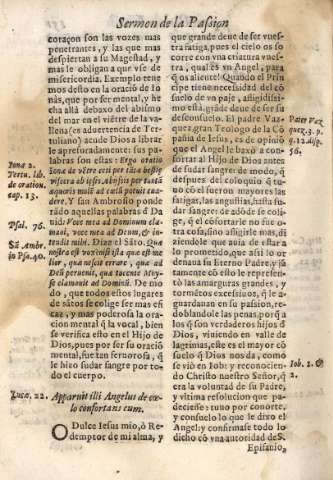 Sermon de la Passion
coraçon son las vozes mas
penetrantes, y las que mas
despiertan a su Magestad, y
mas le obligan a que vse de
misericordia. Exemplo tene
mos desto en la oracion de Io
nàs, que por ser mental, y he
cha allà debaxo del abismo
del mar en el viẽtre de la va-
llena (es aduertencia de Ter-
tuliano) acude Dios a librar
le apresuradamente: sus pa-
labras son estas: Ergo oratio
Ionæ de vẽtre ceti per tãta
viscera ab ipsis
aquoris ad cœlũ potuit eua
dere. Y san Ambrosio ponde
rãdo aquellas palabras d Da
uid: Voce mea ad Dominum cla
maui, voce mea ad Deum, & in
tendit mihi. Dize el Sãto. Qua
nostra est vox nisi ista quæ est me
lior, qua nescit errare, qua ad
Deũ peruenit, qua tacente Moy
se clamauit ad Dominũ. De mo
do, que todos estos lugares
de sãtos se colige ser mas efi
caz, y mas poderosa la ora-
cion mental q̃ la vocal, bien
se verifica esto en el Hijo de
Dios, pues por ser su oraciõ
mental, fue tan feruorosa, q̃
le hizo sudar sangre por to-
do el cuerpo.
Apparuit illi Angelus de cœ
lo confortans eum.
O Dulce Iesus mio, ò Re
demptor de mi alma, y
Ionæ 2.
Tertu. lib.
de oration.
cap. 13.
Psal. 76.
Sã Ambr.
in Psa. 40.
Lucæ. 22.
que grande deue de ser vues-
tra fatiga, pues el cielo os so
corre con vna criatura vues-
tra, qual es vn Angel, para
q̃ os aliente! Quando el Prin
cipe tiene necesidad del cõ
suelo de vn paje, afligidissi-
mo està, grande deue de ser su
desconsuelo. El padre Vaz
quez gran Teologo de la Cõ
pañia de Iesus, es de opiniõ
que el Angel le baxò a con-
fortar al Hijo de Dios antes
de sudar sangre de modo, q̃
despues del coloquio q̃ tu
uo cõ el fueron mayores las
fatigas, las angustias, hasta su
dar sangre: de adõde se coli-
ge, q̃ el cõfortarle no fue o-
tra cosa, sino afligirle mas, di
ziendole que auia de estar a
lo prometido, que assi lo or
denaua su Eterno Padre, y jũ
tamente cõ esto le represen-
tò las amarguras grandes, y
tormẽtos excessiuos, q̃ le a-
guardauan en su passion, re-
doblandole las penas, porq̃ a
los q̃ son verdaderos hijos d
Dios, viuiendo en valle de
lagrimas, este es el mayor cõ
suelo q̃ Dios nos da, como
se viò en Iob: y reconocien-
do Christo nuestro Señor, q̃
era la voluntad de su Padre,
y vltima resolucion que pa-
decieße: tuuo por conorte,
y consuelo lo que le dixo el
Angel: y confirmase todo lo
dicho cõ vna autoridad de S.
Epifanio,
Pater Vaz
quez. 3. p.
q. 12. disp.
56.
Iob. 1. &
2.